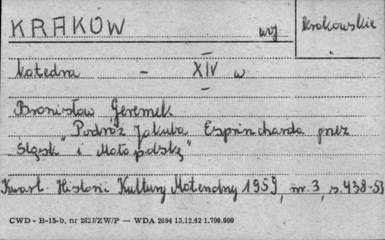 KRAKÓW woj krakowskie
Katedra - XIV w
Bronisław Geremek
"Podróż Jakuba Esprincharda przez
Śląsk i Małopolskę"
Kwart. Historii Kultury Materialnej 1959, nr. 3, s. 438-53
CWD - B-15-b, nr 2827/ZW/P — WDA 2694 13.12.62 1.700.000